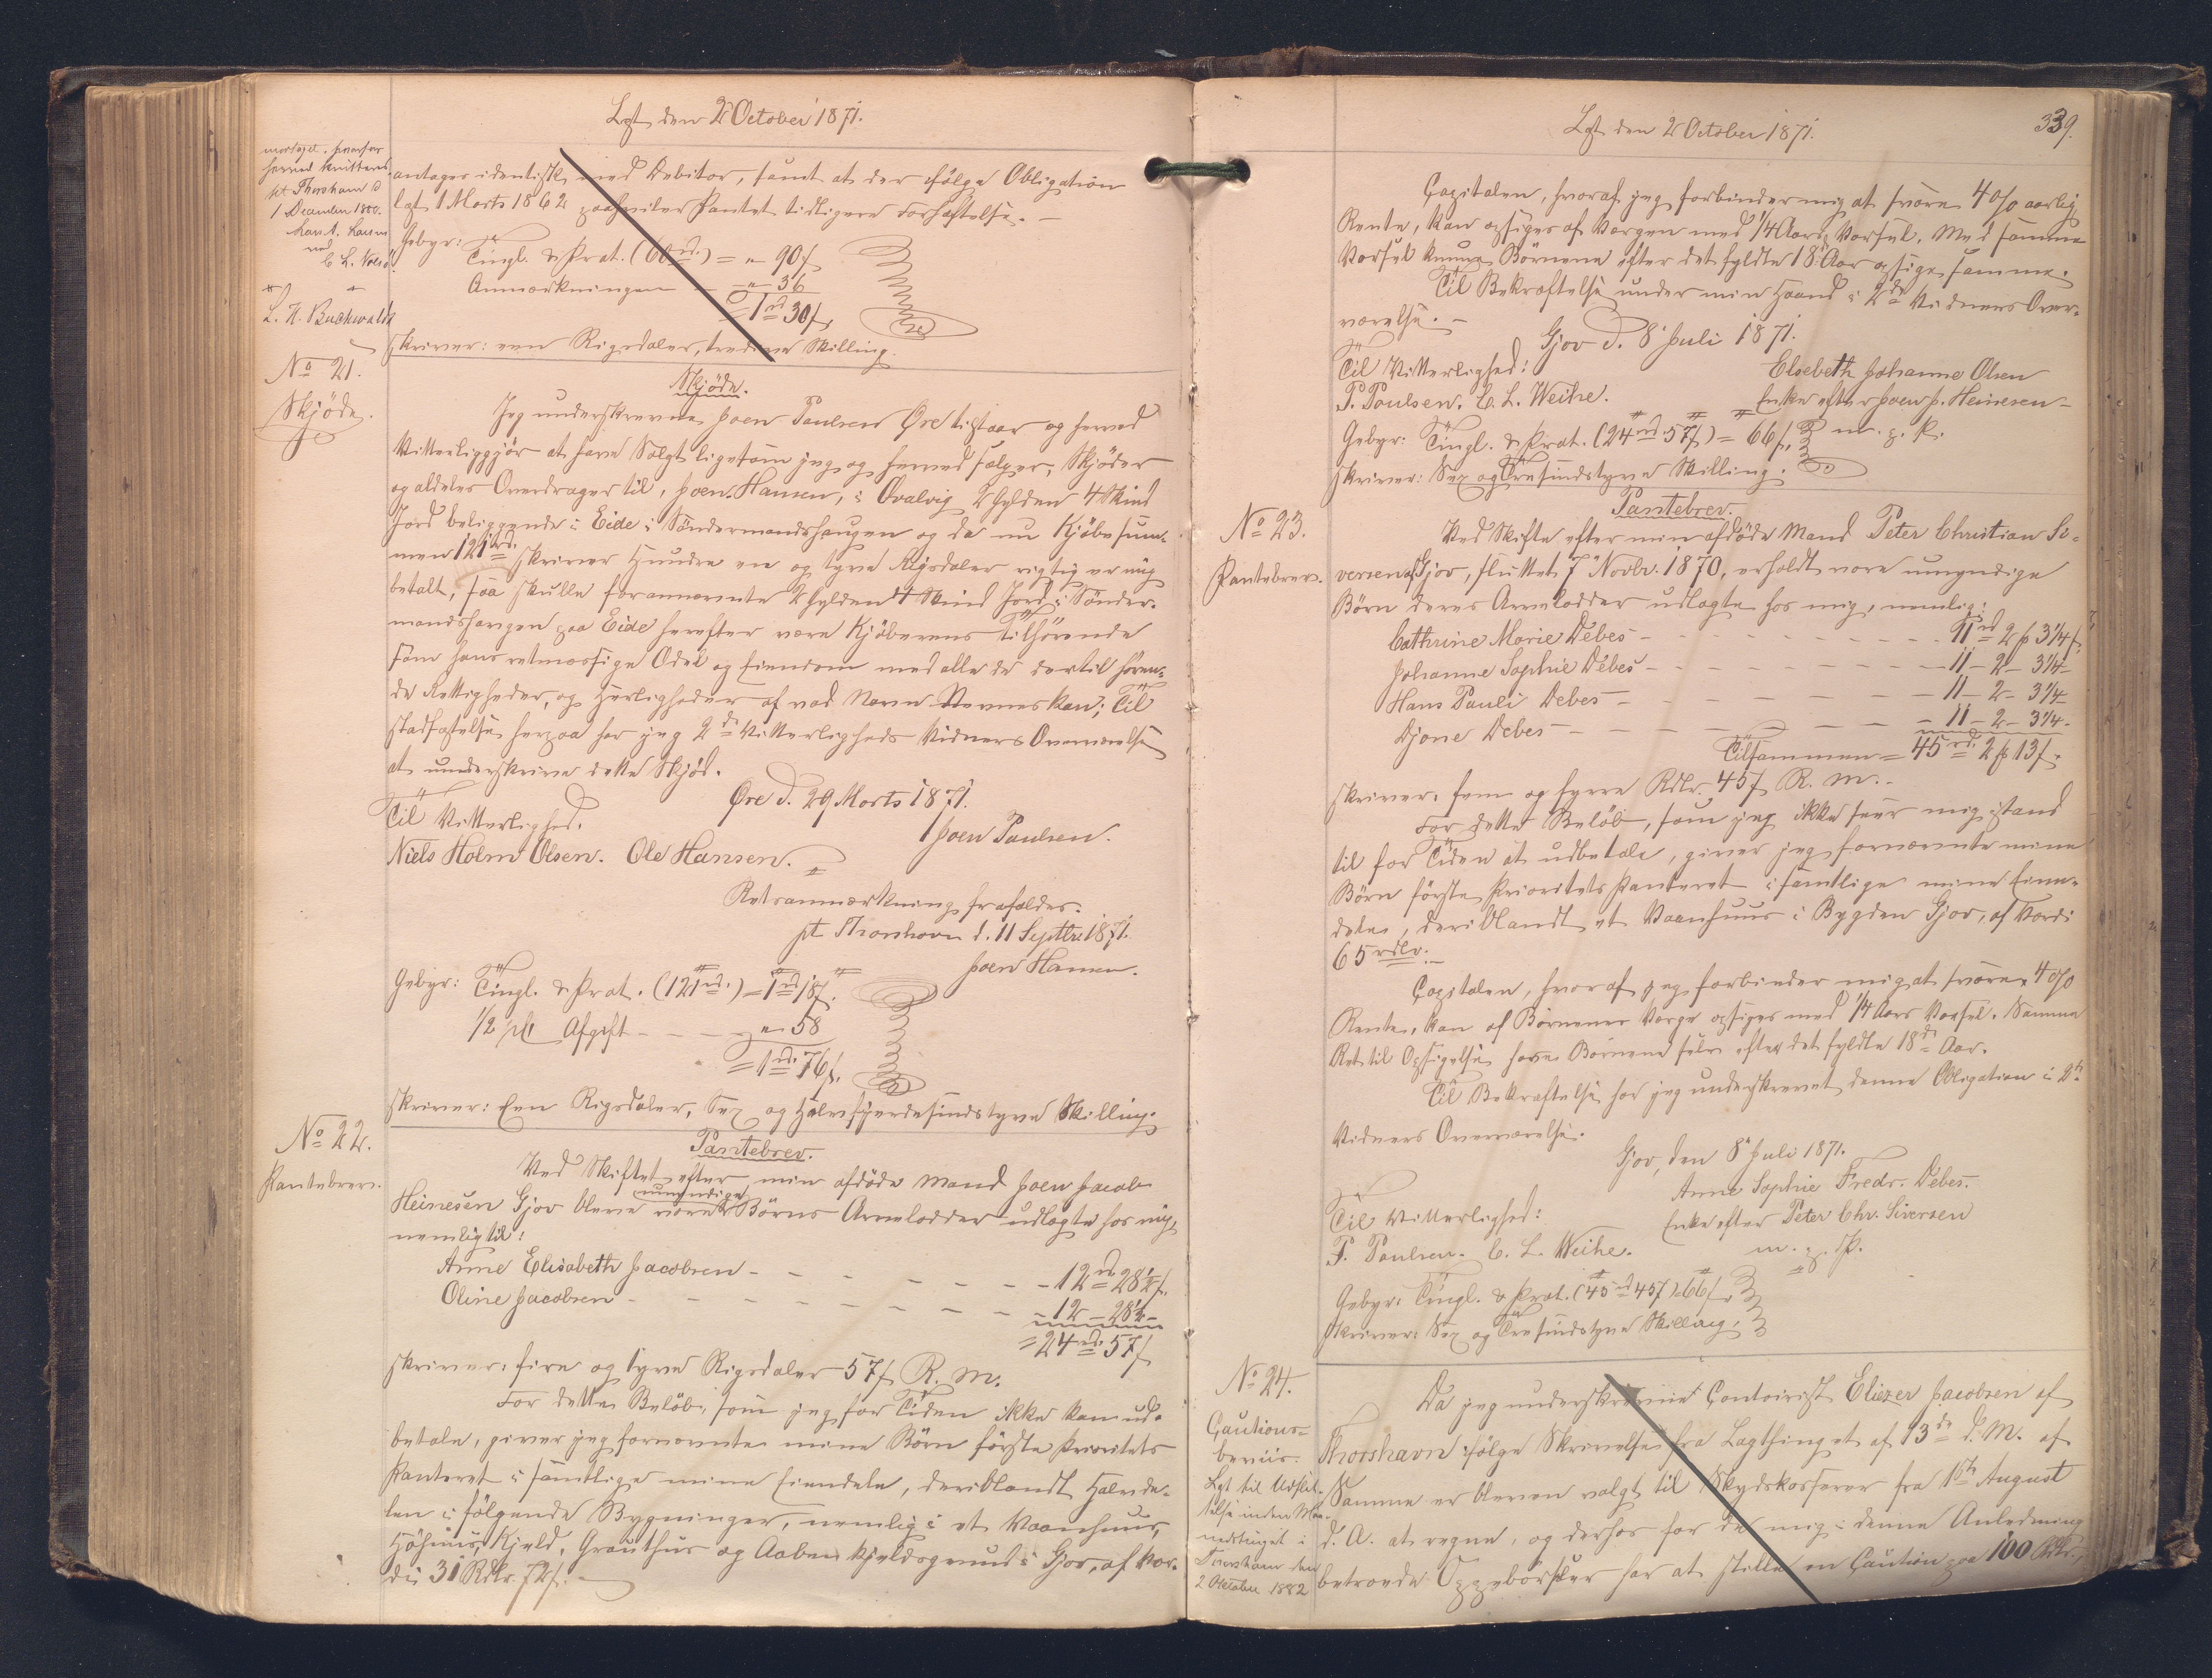 Lgt den 2 October 1871.
modtaget, hvorfor
herved kvitteres.
pt Thorshavn d
1 December 1880.
L. H. Buchwaldt
antages identisk med Debitor, samt at der ifølge Obligation
lgt 1 Marts 1862 paahviler Pantet tidligere Forhæftelse. –
Gebyr: Tingl. & Prot. (60 rd.) = „ 90 ſ
Anmærkningen – „ 36
= 1 rd 30 ſ,
skriver: een Rigsdaler, tredive Skilling.
No 21.
Skjöde.
Skjöde.
Jeg underskrevne Joen Paulsen Øre tilstaar og herved
Vitterliggjör at have Solgt ligesom jeg og herved sælger, Skjöder
og aldeles Overdrager til, Joen Hansen, i Qvalvig 2 Gylden 4 Skind
Jord beliggende i Eide i Söndermandshaugen og da nu Kjöbesum-
men 121 rd. skriver Hundre een og tyve Rigsdaler rigtig er mig
betalt, saa skulle forannævnte 2 Gylden 4 Skind Jord i Sönder-
mandshaugen paa Eide herefter være Kjöberens Tilhörende
som hans retmæssige Odel og Eiendom med alle de dertil hören-
de Rettigheder, og Herligheder af vad Navn Nevnes kan; Til
stadfæstelse herpaa har jeg 2de Vitterligheds Vidners Overværelse
at underskrive dette Skjöd.
Øre d. 29 Marts 1871.
Til Vitterlighed.
Joen Paulsen.
Niels Holm Olsen. Ole Hansen.
Retsanmærkning frafaldes.
pt Thorshavn d. 11 Septbr 1871.
Joen Hansen.
Gebyr: Tingl. & Prot. (121 rd.) = 1 rd 18 ſ.
1/2 pCt Afgift – – „ 58
= 1 rd. 76 ſ.
skriver: Een Rigsdaler, Sex og Halvfjerdesindstyve Skilling.
No 22.
Pantebrev.
Pantebrev.
Ved Skiftet efter min afdöde Mand Joen Jacob
Heinesen Gjov bleve vore umyndige Börns Arvelodder udlagte hos mig,
nemlig til:
Anne Elisabeth Jacobsen – – – – – – 12 rd 28 1/2 ſ.
Oline Jacobsen – – – – – – – – 12 – 28 1/2 –
= 24 rd. 57 ſ
skriver: fire og tyve Rigsdaler 57 ſ R. M.
For dette Belöb, som jeg for Tiden ikke kan ud-
betale, giver jeg fornævnte mine Börn förste Prioritets
Panteret i samtlige mine Eiendele, deriblandt Halvde-
len i fölgende Bygninger, nemlig i et Vaanhuus,
Höhuus, Kjeld, Grauthus og Aaben kjeldsgrund i Gjov, af Vær-
die 31 Rdlr. 72 ſ. –
Lgt den 2 October 1871.
339.
Capitalen, hvoraf jeg forbinder mig at svare 4 % aarlig
Rente, kan opsiges af Værgen med 1/4 Aars Varsel. Med samme
Varsel kunne Börnene efter det fyldte 18 Aar opsige samme.
Til Bekræftelse under min Haand i 2de Vidners Over-
værelse. –
Gjov d. 8 Juli 1871.
Til Vitterlighed:
Elsebeth Johanne Olsen
P. Poulsen. C. L. Weihe.
Enke efter Joen J. Heinesen –
m. p. P.
Gebyr: Tingl. & Prot. (24 rd 57 ſ) = 66 ſ,
skriver: Sex og Tresindstyve Skilling.
No 23.
Pantebrev.
Pantebrev.
Ved Skifte efter min afdöde Mand Peter Christian Si-
versen af Gjov, sluttet 7 Novbr. 1870, erholdt vore umyndige
Börn deres Arvelodder udlagte hos mig, nemlig:
Cathrine Marie Debes – – – – – – – – 11 rd 2 ꝑ 3 1/4 ſ,
Johanne Sophie Debes – – – – – – – – 11 – 2 – 3 1/4 –
Hans Pauli Debes – – – – – – – – 11 – 2 – 3 1/4
Djone Debes – – – – – – – – – 11 – 2 – 3 1/4.
Tilsammen = 45 rd. 2 ꝑ 13 ſ.
skriver: fem og fyrre Rdlr. 45 ſ R. M. –
For dette Belöb, som jeg ikke seer mig istand
til for Tiden at udbetale, giver jeg fornævnte mine
Börn förste Prioritets Panteret i samtlige mine Eien-
dele, deriblandt et Vaanhuus i Bygden Gjov, af Værdi
65 rdlr. –
Capitalen, hvoraf jeg forbinder mig at svare 4 %
Rente, kan af Börnenes Værge opsiges med 1/4 Aars Varsel. Samme
Ret til Opsigelse have Börnene selv efter det fyldte 18de Aar.
Til Bekræftelse har jeg underskrevet denne Obligation i 2de
Vidners Overværelse.
Gjov, den 8 Juli 1871.
Anne Sophie Fredr. Debes.
Til Vitterlighed:
Enke efter Peter Chr. Siversen
P. Poulsen. C. L. Weihe.
m. p. P.
Gebyr: Tingl. & Prot. (45 rd 45 ſ) 66 ſ,
skriver: Sex og Tresindstyve Skilling.
No 24.
Cautions-
beviis.
Lgt til Udslet-
telse inden Maa-
nedstinget i
Thorshavn den
2 Oktober 1882
Da jeg underskrevne Contoirist Eliezer Jacobsen af
Thorshavn ifölge Skrivelse fra Lagthinget af 13de d. M. af
Samme er bleven valgt til Skydskasserer fra 1ste August
d. A. at regne, og derfor for de mig i denne Anledning
betroede Oppebörsler har at stille en Caution paa 100 Rdlr.,